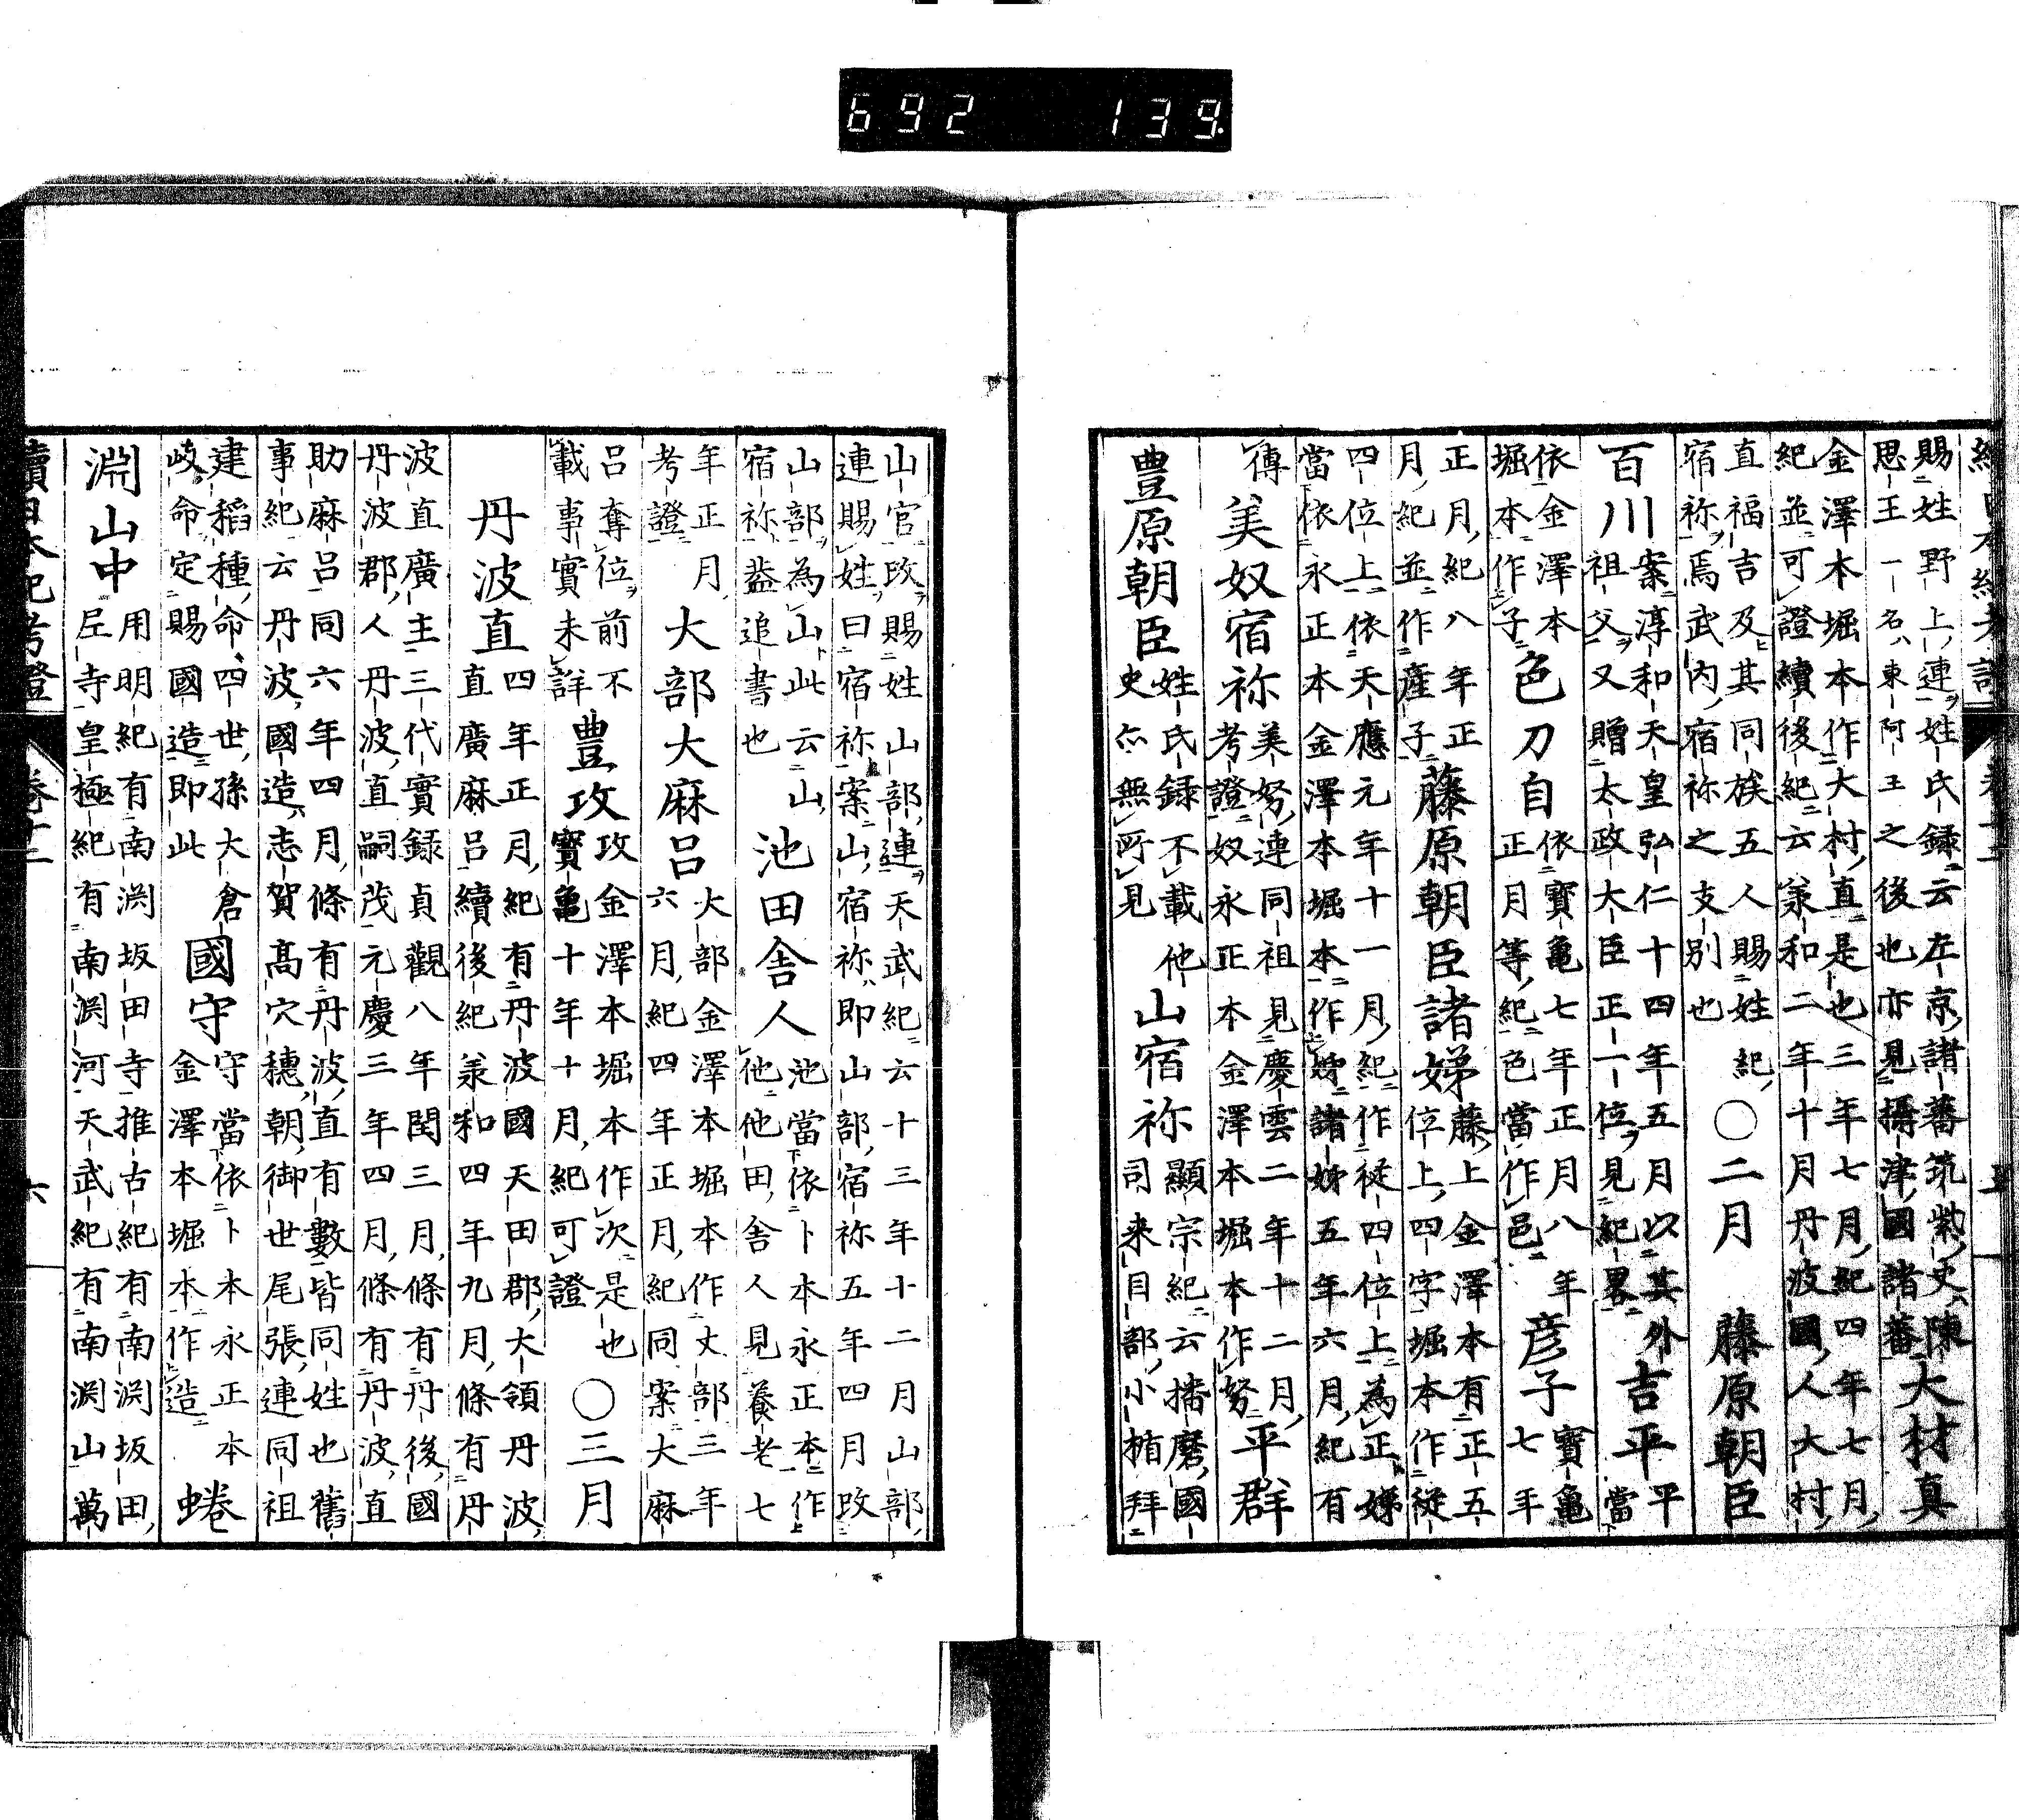 692 139.
賜姓野上連姓氏録云左京諸蕃筑紫史陳
思王一名東阿王之後也亦見攝津國諸蕃
大材真
金澤本堀本作大村直是也三年七月紀四年七月
紀並可證續後紀云羕和二年十月丹波國人大村
直福吉及其同族五人賜姓紀
宿祢焉武内宿祢之支別也
〇二月 藤原朝臣
百川
案淳和天皇弘仁十四年五月以其外
祖父又贈太政大臣正一位見紀畧
吉平
平
當
依金澤本
堀本作子
色刀自
依寶亀七年正月八年
正月等紀色當作邑
彦子
寶亀
七年
正月紀八年正
月紀並作産子
藤原朝臣諸娣
藤上金澤本有正五
位上四字堀本作従
四位上依天應元年十一月紀作従四位上為正娣
當依永正本金澤本堀本作姊諸姊五年六月紀有
傳
美奴宿祢
美努連同祖見慶雲二年十二月
考證奴永正本金澤本堀本作努
平群
豊原朝臣
姓氏録不載他
史亦無所見
山宿祢
顯宗紀云播磨國
司来目部小楯拜
山官改賜姓山部連天武紀云十三年十二月山部
連賜姓曰宿祢案山宿祢即山部宿祢五年四月改
山部為山此云山
宿祢葢追書也
池田舎人
池當依卜本永正本作
他他田舎人見養老七
年正月
考證
大部大麻呂
大部金澤本堀本作丈部三年
六月紀四年正月紀同案大麻
呂奪位前不
載事實未詳
豊攻
攻金澤本堀本作次是也
寶亀十年十月紀可證
〇三月
丹波直
四年正月紀有丹波國天田郡大領丹波
直廣麻呂續後紀羕和四年九月條有丹
波直廣主三代實録貞觀八年閏三月條有丹後國
丹波郡人丹波直嗣茂元慶三年四月條有丹波直
助麻呂同六年四月條有丹波直有數皆同姓也舊
事紀云丹波國造志賀髙穴穗朝御世尾張連同祖
建稲種命四世孫大倉
岐命定賜國造即此
國守
守當依卜本永正本
金澤本堀本作造
蜷
淵山中
用明紀有南渕坂田寺推古紀有南渕坂田
𡰱寺皇極紀有南渕河天武紀有南渕山萬
續日本紀考證 卷十二 六